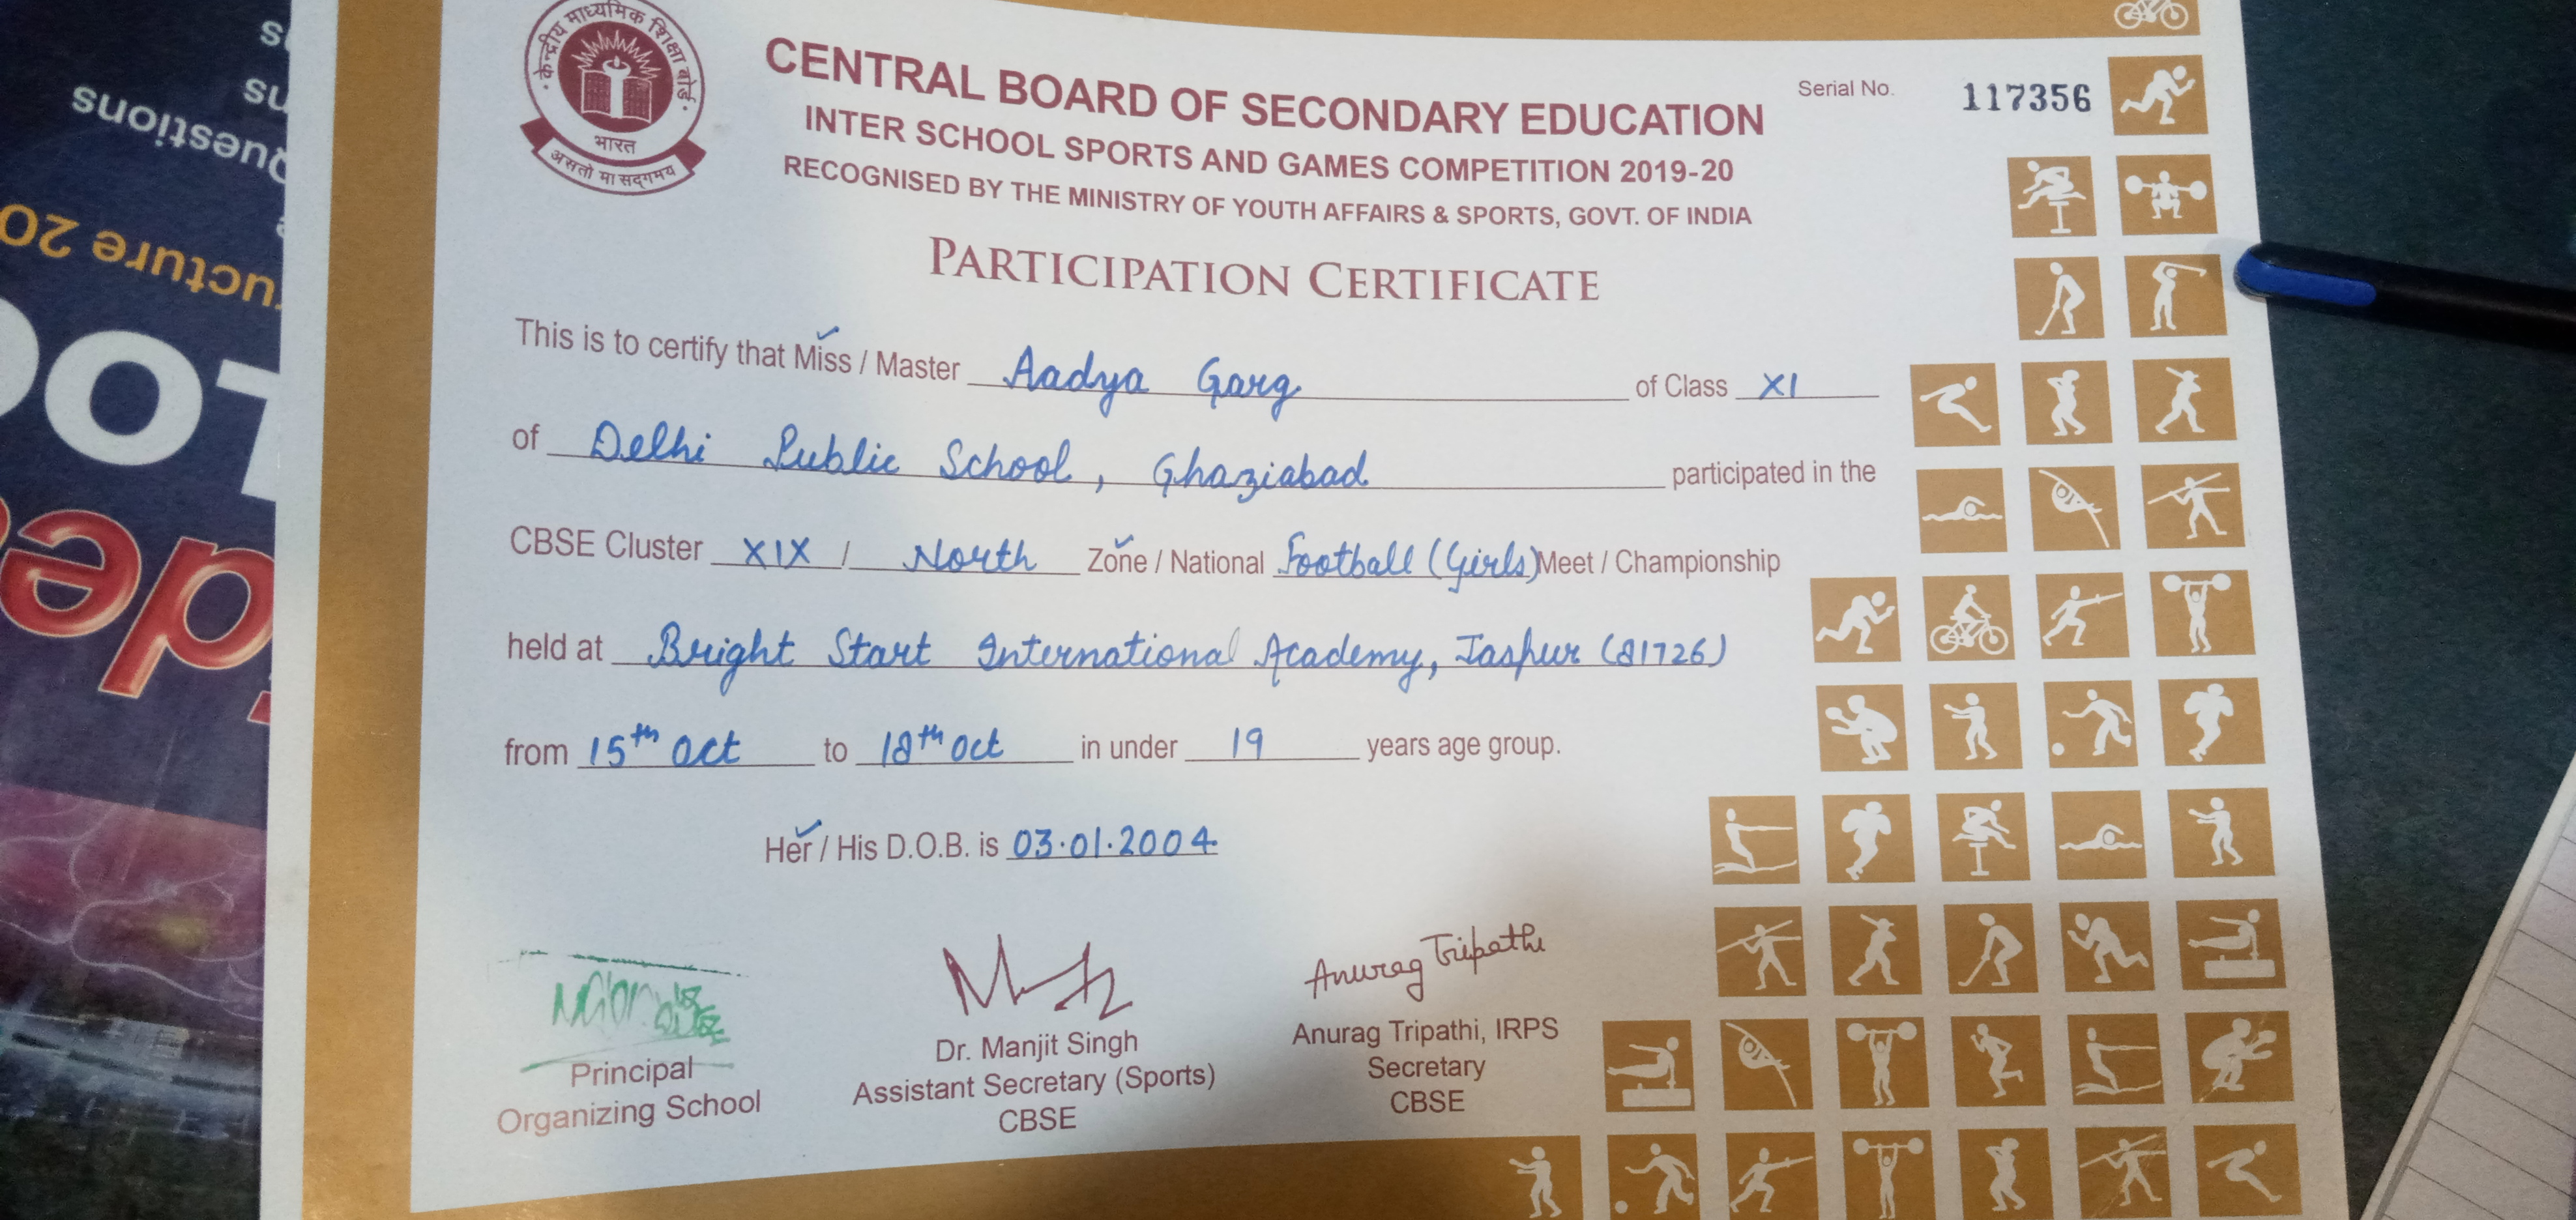 केन्द्रीय माध्यमिक शिक्षा बोर्ड
भारत
असतो मा सद्गमय
CENTRAL BOARD OF SECONDARY EDUCATION
Serial No. 117356
INTER SCHOOL SPORTS AND GAMES COMPETITION 2019-20
RECOGNISED BY THE MINISTRY OF YOUTH AFFAIRS & SPORTS, GOVT. OF INDIA
PARTICIPATION CERTIFICATE
This is to certify that Miss / Master Aadya Garg of Class XI
of Delhi Public School, Ghaziabad participated in the
CBSE Cluster XIX / North Zone / National Football (Girls) Meet / Championship
held at Bright Start International Academy, Jaspur (81726)
from 15th Oct to 18th Oct in under 19 years age group.
Her / His D.O.B. is 03.01.2004
Anurag Tripathi
Principal
Organizing School
Dr. Manjit Singh
Assistant Secretary (Sports)
CBSE
Anurag Tripathi, IRPS
Secretary
CBSE
Questions
ucture 20